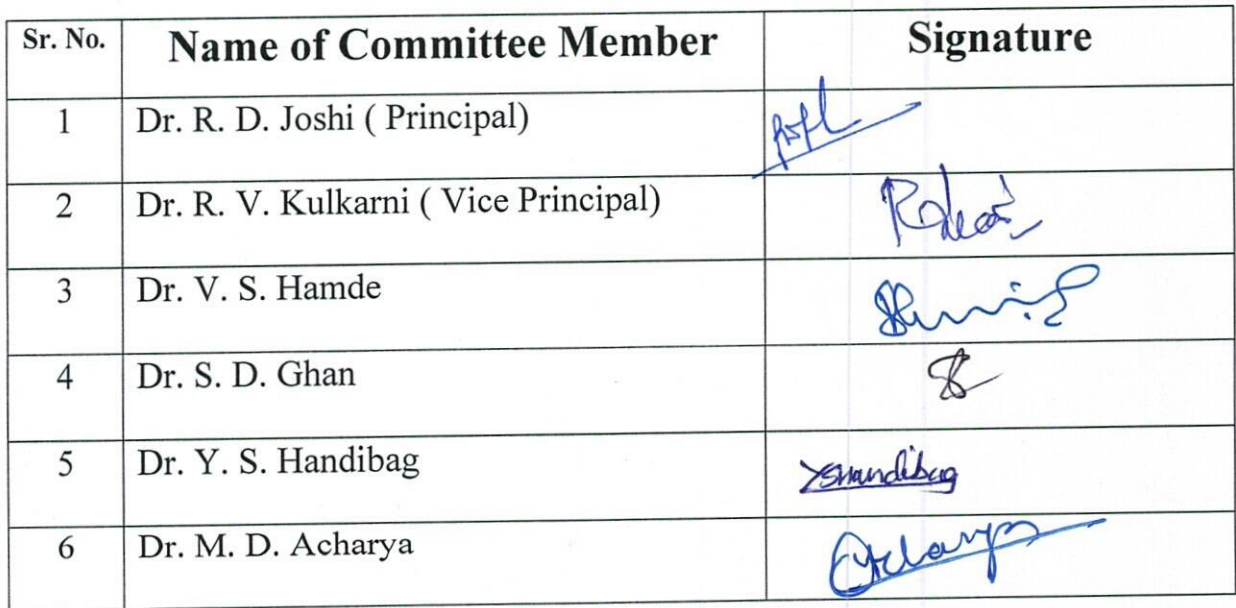 Sr. No. Name of Committee Member Signature
1 Dr. R. D. Joshi ( Principal)
2 Dr. R. V. Kulkarni ( Vice Principal)
3 Dr. V. S. Hamde
4 Dr. S. D. Ghan
5 Dr. Y. S. Handibag YSHandibag
6 Dr. M. D. Acharya